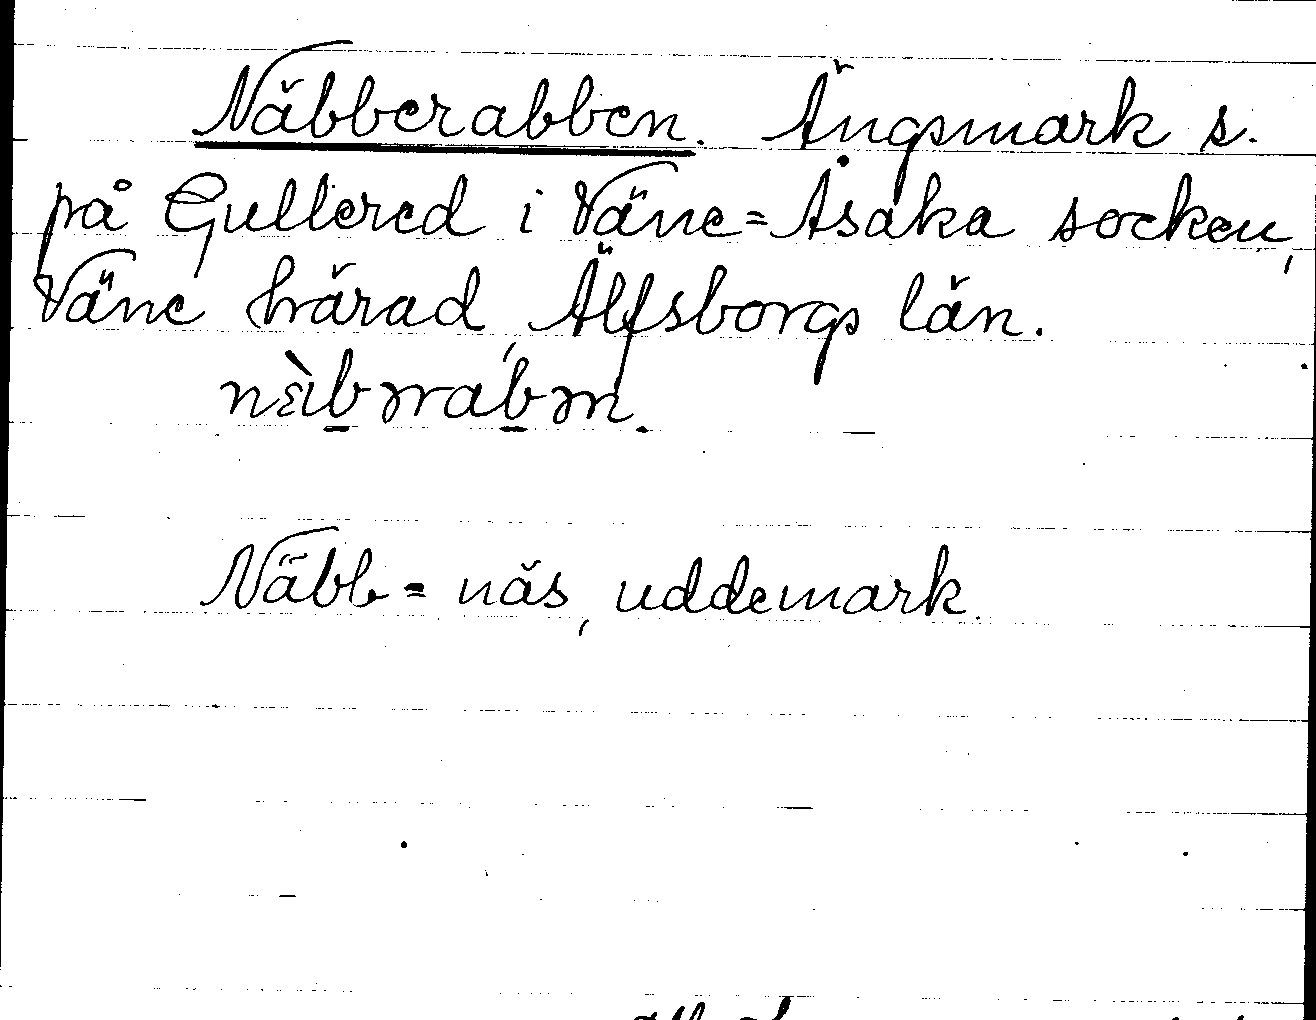 Näbberabben. Ängsmark s.
på Gullered i Väne=Åsaka socken,
Väne härad, Älfsborgs län.
Näbb = näs, uddemark.